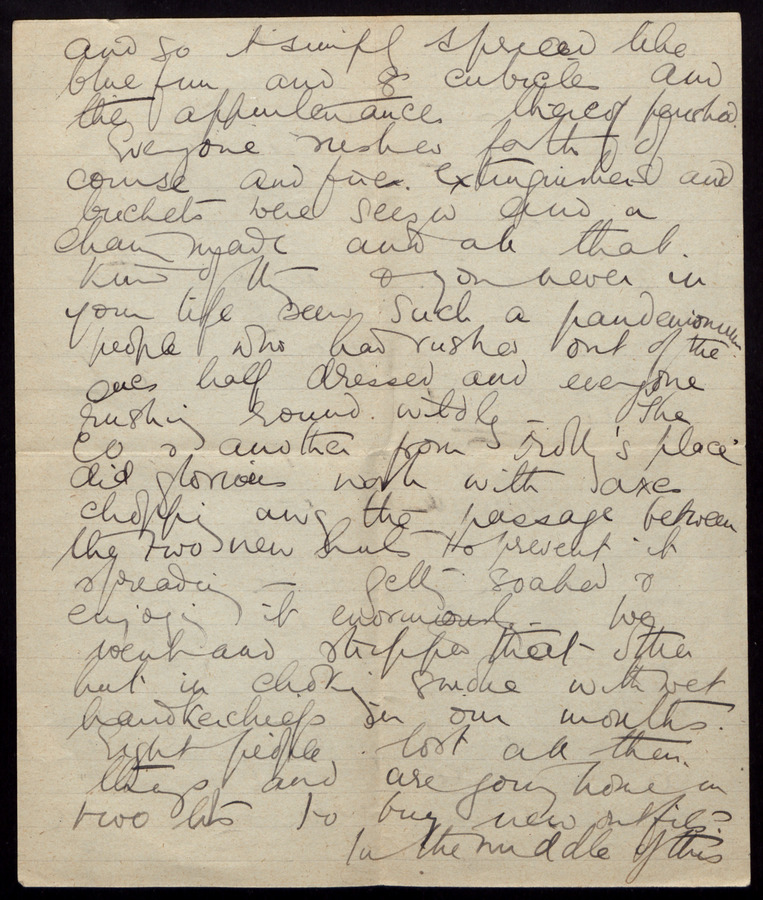 and so it simply spread like
blue fun and 8 cubicles and
their appurtenances thereof perished.
Everyone rushed forth of
course and fire extinguishers and
buckets were seized and a
chain made and all that
kind of thing & you never in
your life seen such a pandemonium
people who had rushed out of the
half dressed and everyone
rushing round wildly – The
CO & another from 's place
did glorious work with axes
chopping away the passage between
the two new huts to prevent it
spreading – getting soaked &
enjoying it enormously. We
went and stripped that other
hut in choking smoke with wet
handkerchiefs in our mouths.
Eight people lost all their
things and are going home in
two lots to buy new outfits
In the middle of this